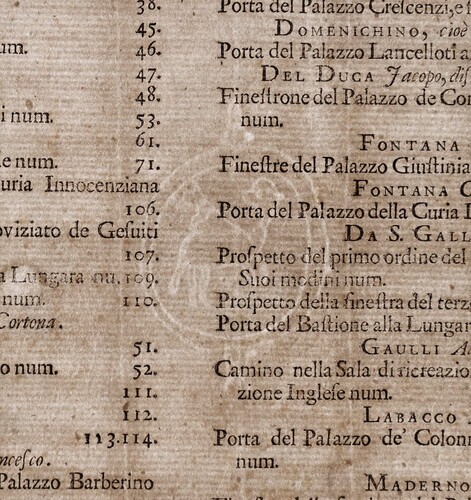 38.
45.
um.
46.
47.
48.
i num.
53.
61.
e num.
71.
uria Innocenziana
106.
oviziato de Gesuiti
107.
a Lungara nu. 109.
num.
110.
Cortona.
51.
o num.
52.
111.
112.
113.114.
ncesco.
Palazzo Barberino
Porta del Palazzo Crescenzi, e s
DOMENICHINO, cioè
Porta del Palazzo Lancelloti a
DEL DUCA Jacopo, dis
Finestrone del Palazzo de Con
num.
FONTANA
Finestre del Palazzo Giustinia
FONTANA C
Porta del Palazzo della Curia I
DA S. GALL
Prospetto del primo ordine del
Suoi modini num.
Prospetto della finestra del terz
Porta del Bastione alla Lungar
GAULLI A
Camino nella Sala di ricreazio
zione Inglese num.
LABACCO A
Porta del Palazzo de' Colonn
num.
MADERNO